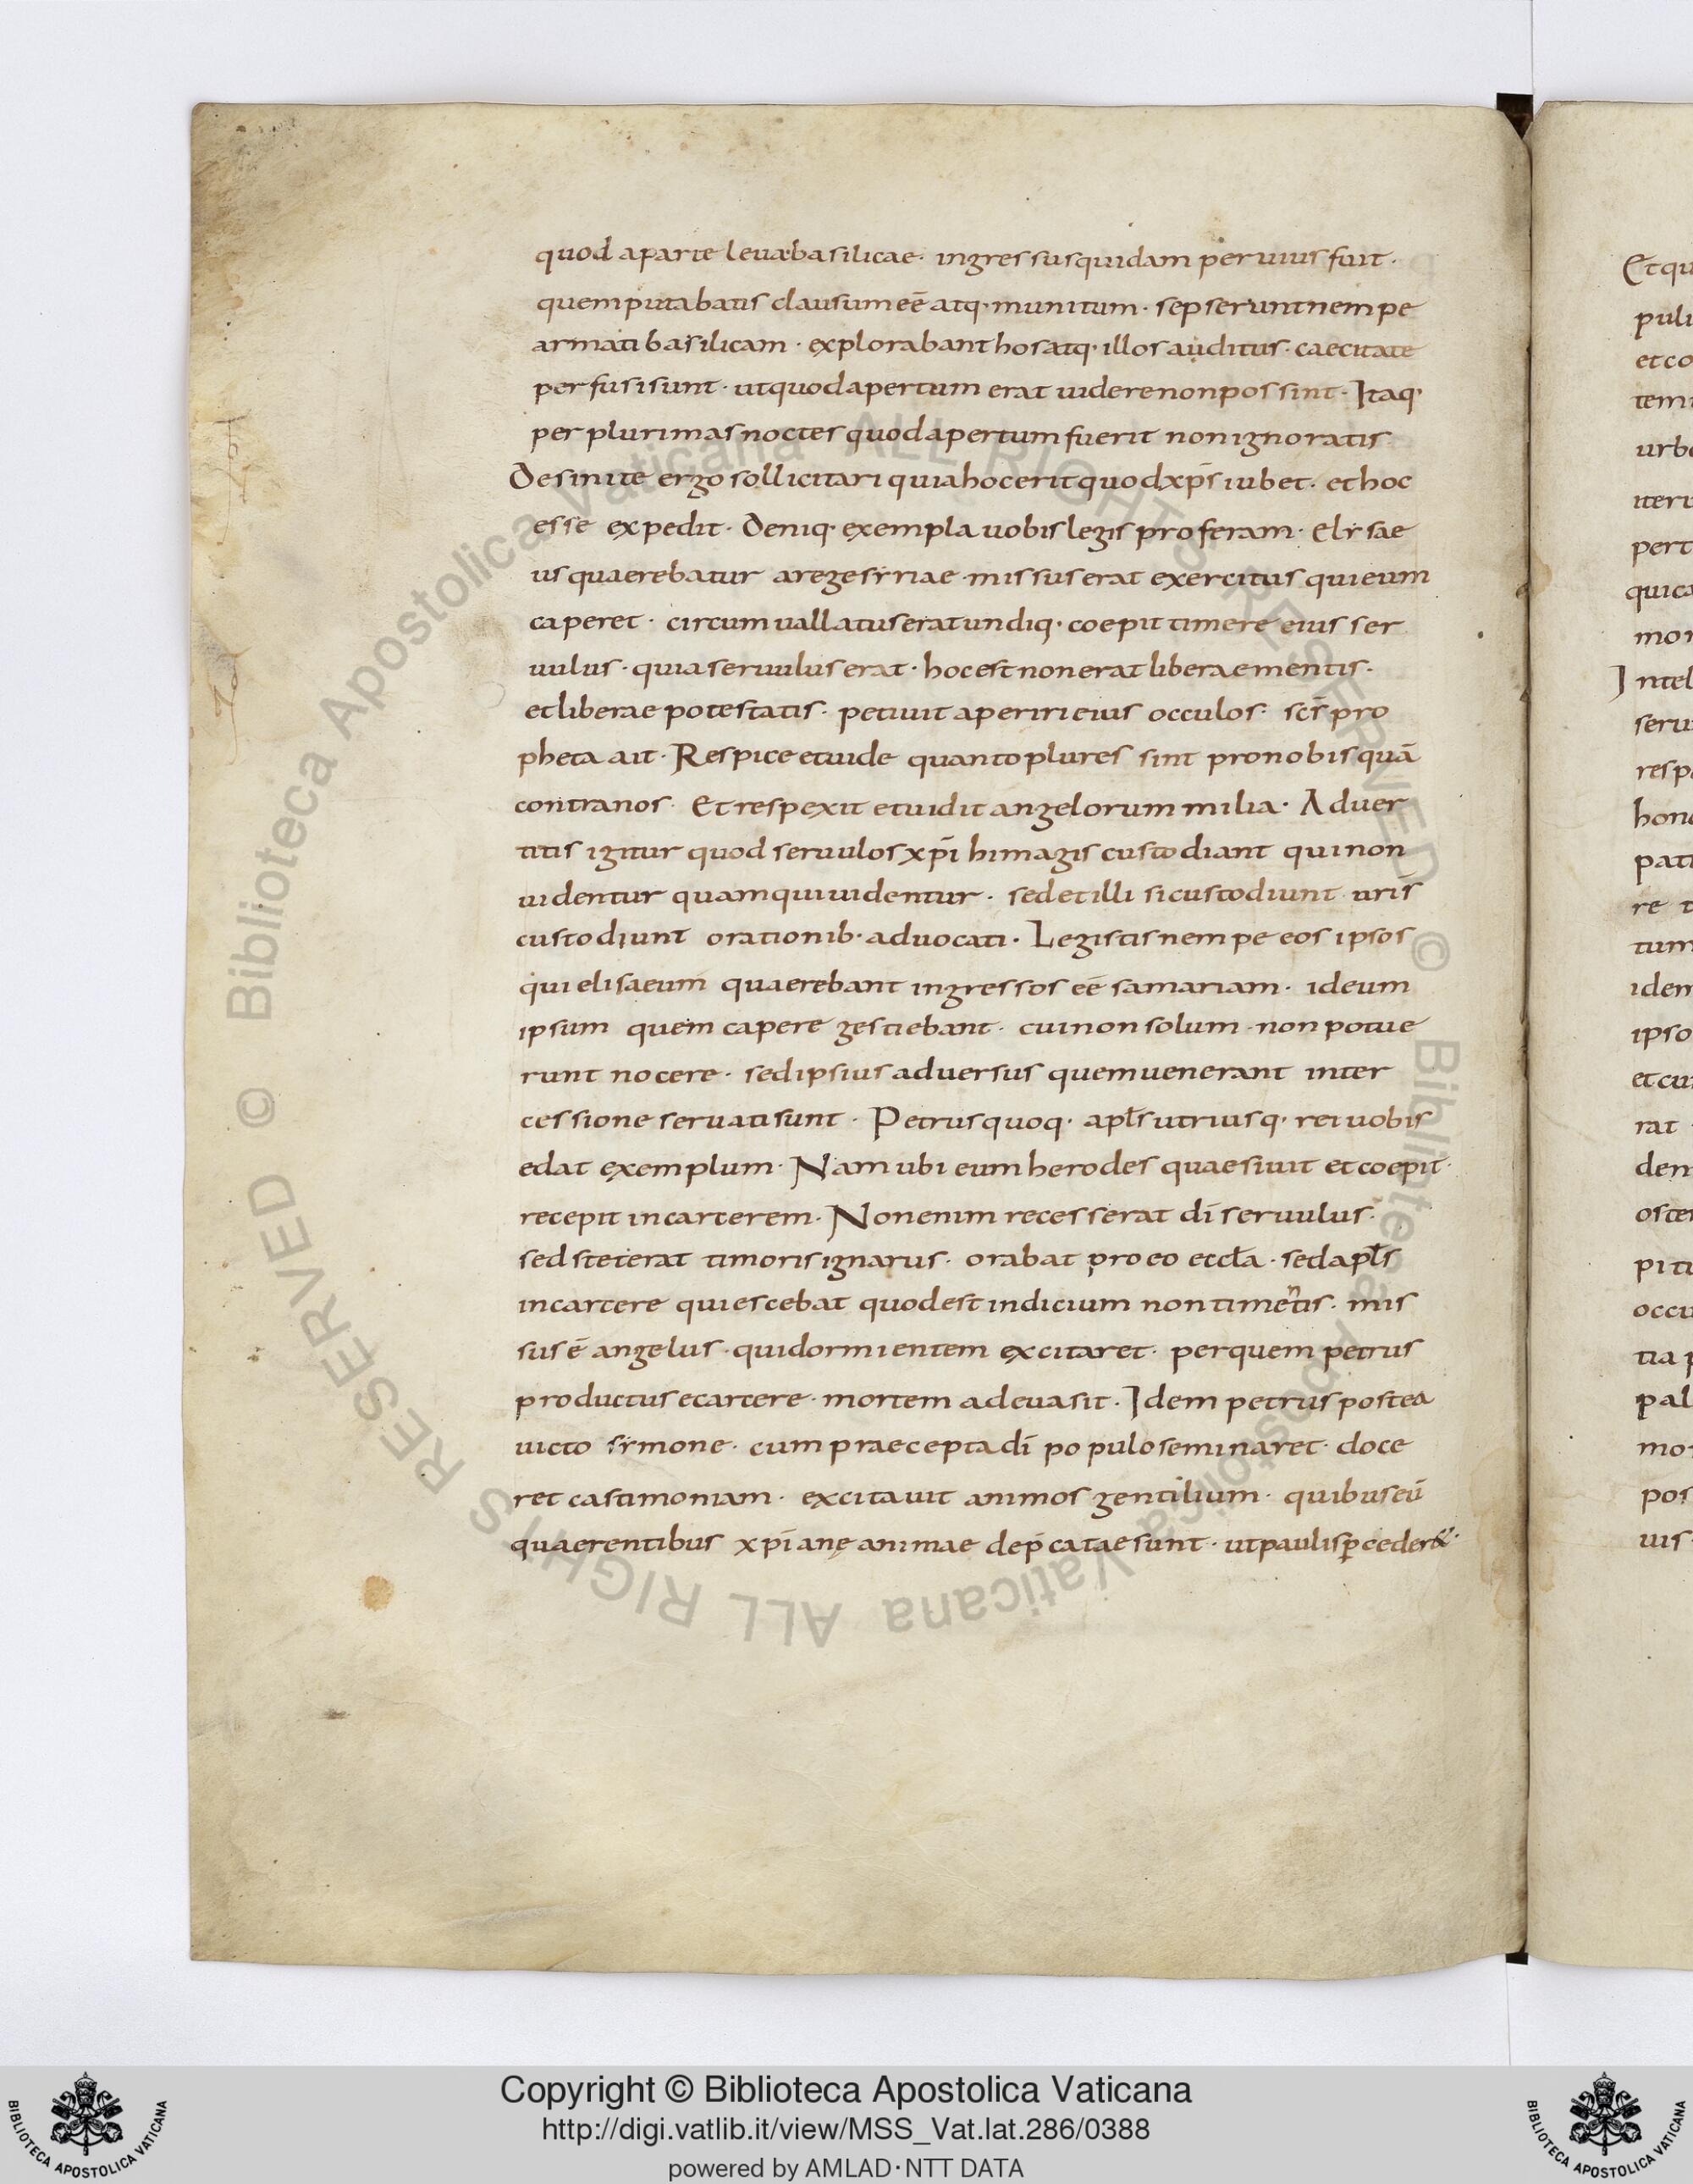 quod aparte leuabasilicae· ingressusquidam peruius fuit·
quem putabatis clausum eē atq· munitum· sepserunt nempe
armati basilicam· explorabant hos atq· illos auditus· caecitate
perfusi sunt· ut quod apertum erat uidere non possint· Itaq·
per plurimas noctes quod apertum fuerit non ignoratis
Desinite ergo sollicitari quia hoc erit quod xp̄s iubet· et hoc
esse expedit· Deniq· exempla uobis legis proferam· Elysae
us quaerebatur arege syriae· missus erat exercitus qui eum
caperet· circumuallatus erat undiq· coepit timere eius ser
uulus· quia seruulus erat· hoc est non erat liberae mentis·
et liberae potestatis· petiuit aperiri eius occulos· scs̄ pro
pheta ait· Respice et uide quanto plures sint pro nobis quā
contra nos· Et respexit et uidit angelorum milia· Aduer
titis igitur quod seruulos xp̄i hi magis custodiant qui non
uidentur quam qui uidentur· sed et illi si custodiunt uris̄
custodiunt orationib· aduocati· Legistis nempe eos ipsos
qui elisaeum quaerebant ingressos eē samariam· id eum
ipsum quem capere gestiebant· cui non solum· non potue
runt nocere· sed ipsius aduersus quem uenerant inter
cessione seruati sunt· Petrus quoq· apl̄s utriusq· rei uobis
edat exemplum· Nam ubi eum herodes quaesiuit et coepit·
recepit in carcerem· Non enim recesserat dī seruulus·
sed steterat timoris ignarus· orabat pro eo eccl̄a· sed apl̄s
in carcere quiescebat quod est indicium non timentis· mis
sus ē angelus· qui dormientem excitaret· per quem petrus
productus e carcere· mortem ad euasit· Idem petrus postea
uicto symone· cum praecepta dī populo seminaret· doce
ret castimoniam· excitauit animos gentilium· quibus eū
quaerentibus xp̄ianę animae dep̄catae sunt· ut paulisꝑ cederet·
Et qu
puli
et co
tem
urb
iteru
pert
quica
mor
Intel
seru
resp
hono
pati
re t
tum
idem
ipso
et cu
rat
den
oste
piti
occu
tia p
pal
mor
pos
uis
© Biblioteca Apostolica Vaticana ALL RIGHTS RESERVED © Biblioteca Apostolica Vaticana ALL RIGHTS RESERVED
Copyright © Biblioteca Apostolica Vaticana
http://digi.vatlib.it/view/MSS_Vat.lat.286/0388
powered by AMLAD·NTT DATA
BIBLIOTECA APOSTOLICA VATICANA
BIBLIOTECA APOSTOLICA VATICANA